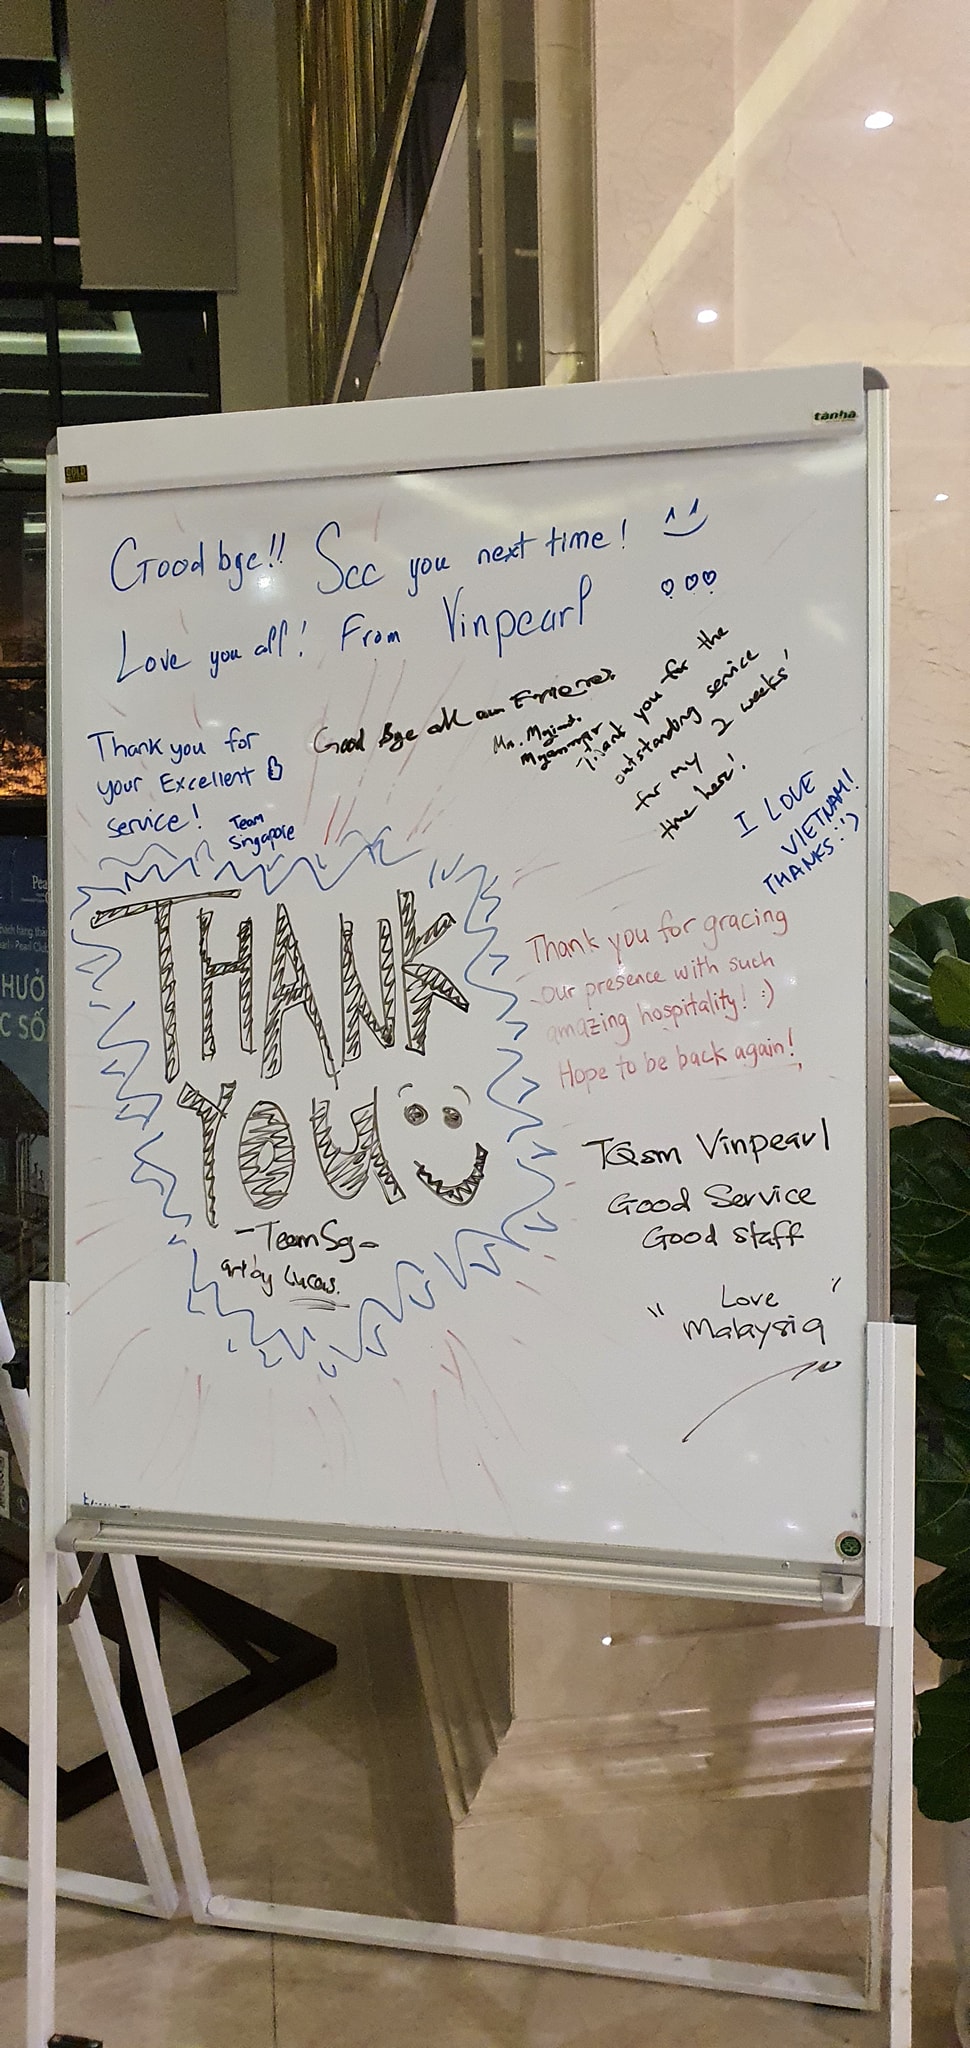 tanha
GOLD
Good bye!! See you next time!
Love you all! From Vinpearl
Good Bye all our Friends.
Mr. Myint.
Myanmar
Thank you for the
outstanding service
for my 2 weeks'
time here!
Thank you for
your Excellent
service!
Team
Singapore
I LOVE
VIETNAM!
THANKS! :)
THANK
YOU
-TeamSg-
art by Lucas.
Thank you for gracing
our presence with such
amazing hospitality! :)
Hope to be back again!
TQsm Vinpearl
Good Service
Good staff
" Love "
Malaysia
Pea
HƯỞ
C SỐ